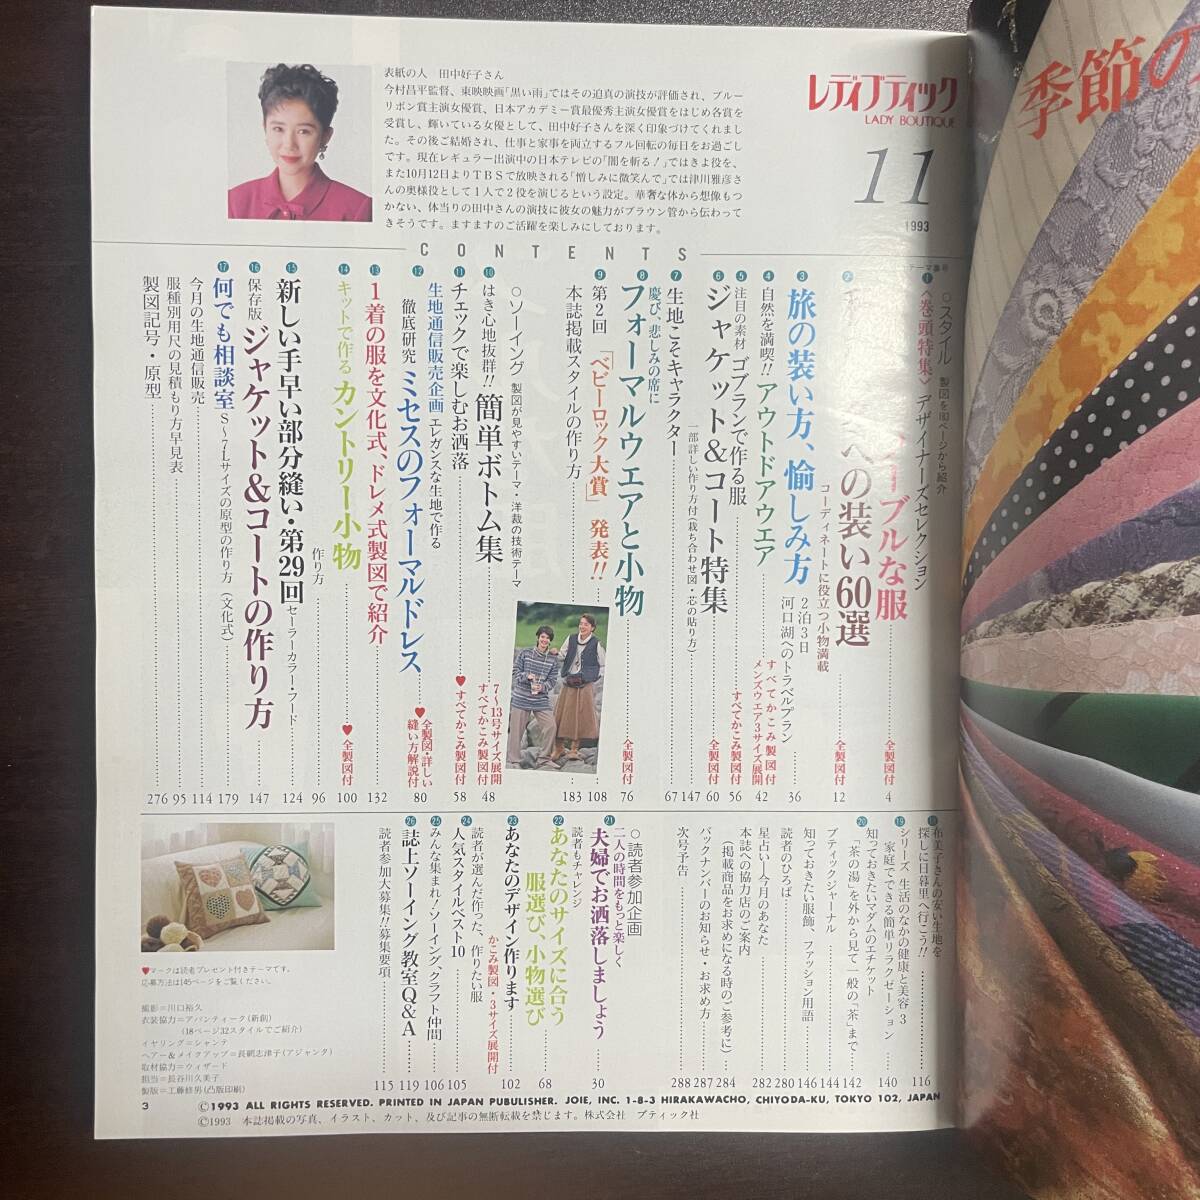 表紙の人 田中好子さん
今村昌平監督、東映映画「黒い雨」ではその迫真の演技が評価され、ブルー
リボン賞主演女優賞、日本アカデミー賞最優秀主演女優賞をはじめ各賞を
受賞し、輝いている女優として、田中好子さんを深く印象づけてくれまし
た。その後ご結婚され、仕事と家事を両立するフル回転の毎日をお過ごし
です。現在レギュラー出演中の日本テレビの「闇を斬る!」ではきよ役を、
また10月12日よりTBSで放映される「憎しみに微笑んで」では津川雅彦さ
んの奥様役として1人で2役を演じるという設定。華奢な体から想像もつ
かない、体当りの田中さんの演技に彼女の魅力がブラウン管から伝わって
きそうです。ますますのご活躍を楽しみにしております。
レディブティック
LADY BOUTIQUE
11
1993
季節の
CONTENTS
テーマ番号
○スタイル 製図を80ページから紹介
1 〈巻頭特集〉デザイナーズセレクション
ーブルな服 全製図付 4
2
への装い60選 全製図付 12
コーディネートに役立つ小物満載
3 旅の装い方、愉しみ方 2泊3日 河口湖へのトラベルプラン 36
4 自然を満喫!! アウトドアウエア すべてかこみ製図付 メンズウエア3サイズ展開 42
5 注目の素材 ゴブランで作る服 すべてかこみ製図付 56
6 ジャケット&コート特集 全製図付 60
一部詳しい作り方付(裁ち合わせ図・芯の貼り方) 147
7 生地こそキャラクター 67
8 慶び、悲しみの席に
フォーマルウエアと小物 全製図付 76
9 第2回「ベビーロック大賞」発表!! 108
本誌掲載スタイルの作り方 183
○ソーイング 製図が見やすいテーマ・洋裁の技術テーマ
10 はき心地抜群!! 簡単ボトム集 7~13号サイズ展開 すべてかこみ製図付 48
11 チェックで楽しむお洒落 ♥すべてかこみ製図付 58
12 生地通信販売企画 エレガンスな生地で作る
徹底研究 ミセスのフォーマルドレス ♥全製図・詳しい縫い方解説付 80
13 1着の服を文化式、ドレメ式製図で紹介 132
14 キットで作る カントリー小物 ♥全製図付 100
作り方 96
15 新しい手早い部分縫い・第29回 セーラーカラー・フード 124
16 保存版 ジャケット&コートの作り方 147
17 何でも相談室 S~7Lサイズの原型の作り方(文化式) 179
今月の生地通信販売 114
服種別用尺の見積もり方早見表 95
製図記号・原型 276
18 布美子さんの安い生地を
探しに日暮里へ行こう!! 116
19 シリーズ 生活のなかの健康と美容 3
家庭でできる簡単リラクゼーション 140
20 知っておきたいマダムのエチケット
「茶の湯」を外から見て一般の「茶」まで 142
ブティックジャーナル 144
知っておきたい服飾、ファッション用語 146
読者のひろば 280
星占い―今月のあなた 282
本誌への協力店のご案内
(掲載商品をお求めになる時のご参考に) 284
バックナンバーのお知らせ・お求め方 287
次号予告 288
○読者参加企画
21 二人の時間をもっと楽しく
夫婦でお洒落しましょう 30
22 読者もチャレンジ
あなたのサイズに合う
服選び、小物選び 68
23 あなたのデザイン作ります かこみ製図・3サイズ展開付 102
24 読者が選んだ作った、作りたい服
人気スタイルベスト10 105
25 みんな集まれ!ソーイング、クラフト仲間 106
26 誌上ソーイング教室Q&A 119
読者参加大募集!!募集要項 115
♥マークは読者プレゼント付きテーマです。
応募方法は145ページをご覧ください。
撮影=川口裕久
衣装協力=アバンティーク(新創)
(18ページ32スタイルでご紹介)
イヤリング=シャンテ
ヘアー&メイクアップ=長網志津子(アジャンタ)
取材協力=ウィザード
担当=長谷川久美子
製版=工藤修男(凸版印刷)
3
©1993 ALL RIGHTS RESERVED. PRINTED IN JAPAN PUBULISHER. JOIE, INC. 1-8-3 HIRAKAWACHO, CHIYODA-KU, TOKYO 102, JAPAN
©1993 本誌掲載の写真、イラスト、カット、及び記事の無断転載を禁じます。株式会社 ブティック社